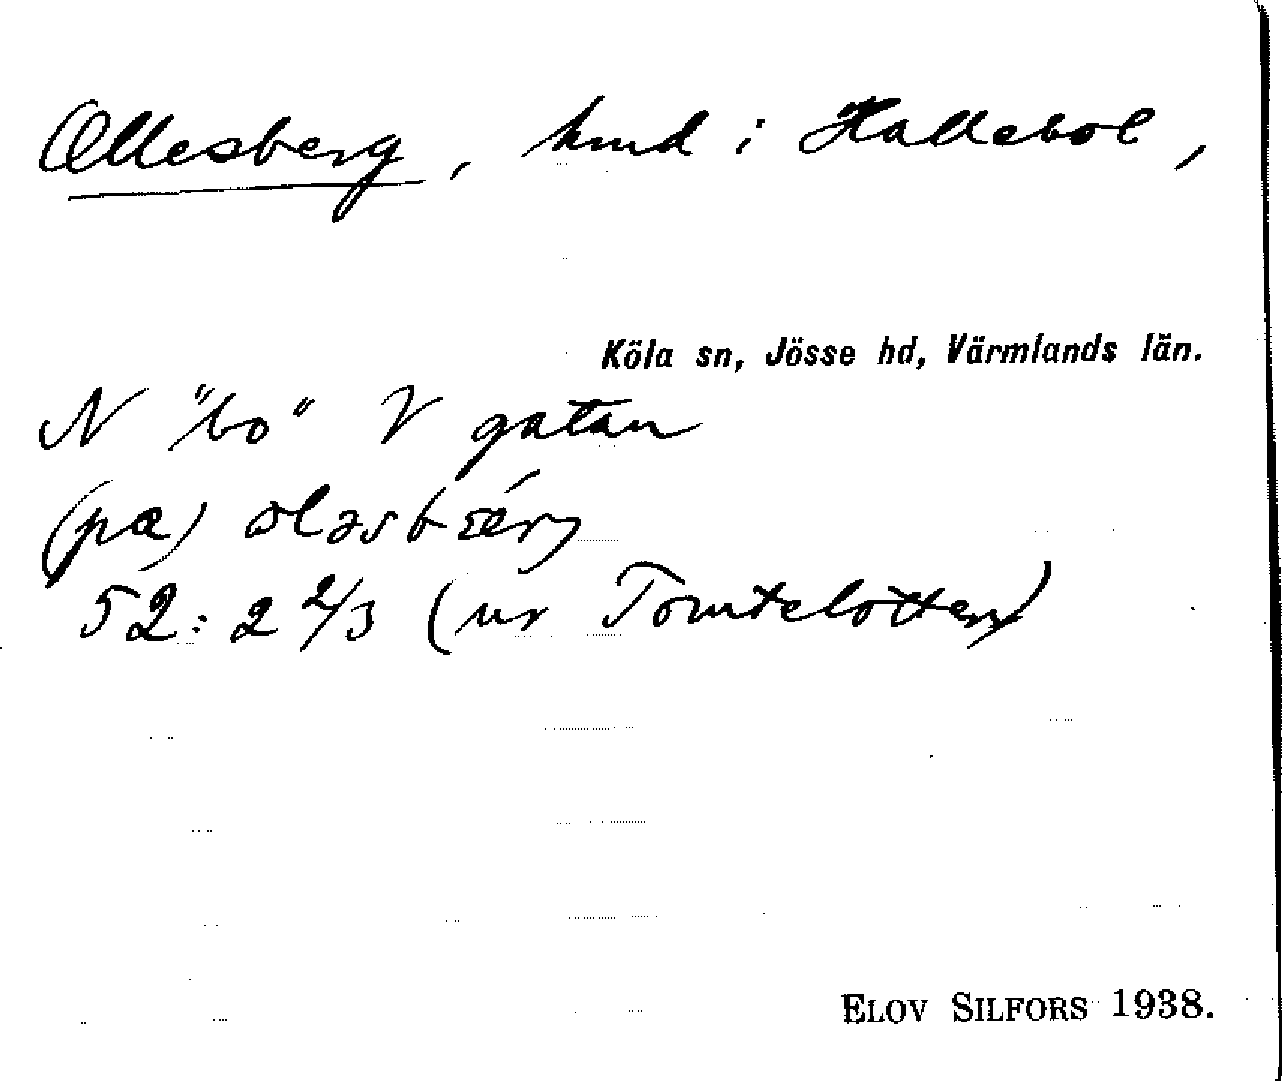 Ollesberg, hmd i Hallebol,
Köla sn, Jösse hd, Värmlands län.
N "bo" V gatan
(pæ)
52:2 2/3 (ur Tomtelotten)
ELOV SILFORS 1938.